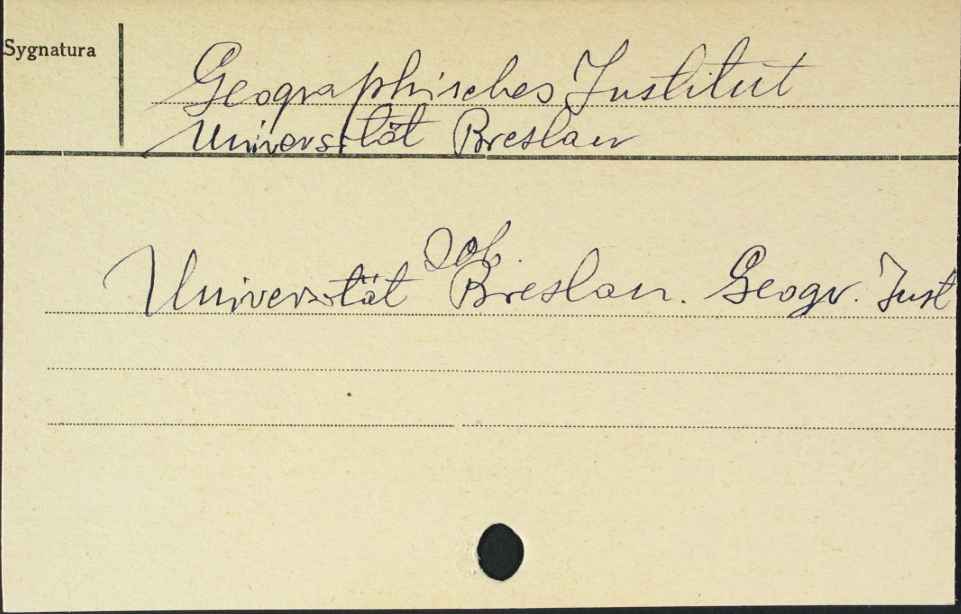 Sygnatura
Geographisches Institut
Universität Breslau
Zob.
Universität Breslau. Geogr. Inst